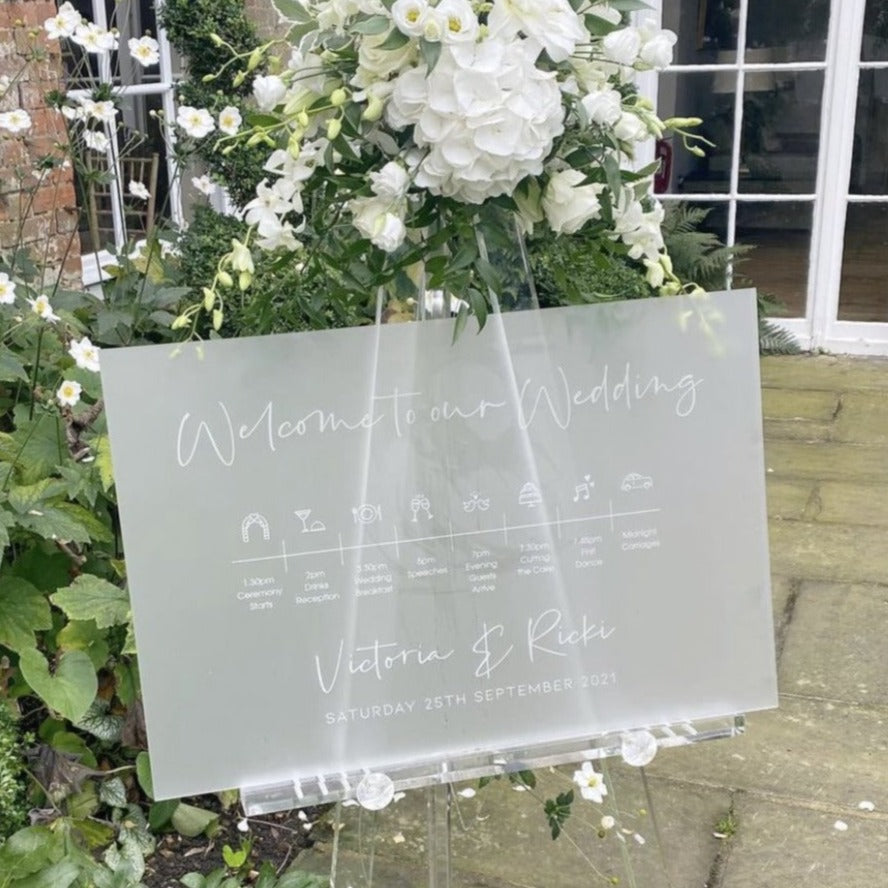 Welcome to our Wedding
1.30pm
Ceremony
Starts
2pm
Drinks
Reception
3.30pm
Wedding
Breakfast
5pm
Speeches
7pm
Evening
Guests
Arrive
7.30pm
Cutting
the Cake
7.45pm
First
Dance
Midnight
Carriages
Victoria & Ricki
SATURDAY 25TH SEPTEMBER 2021